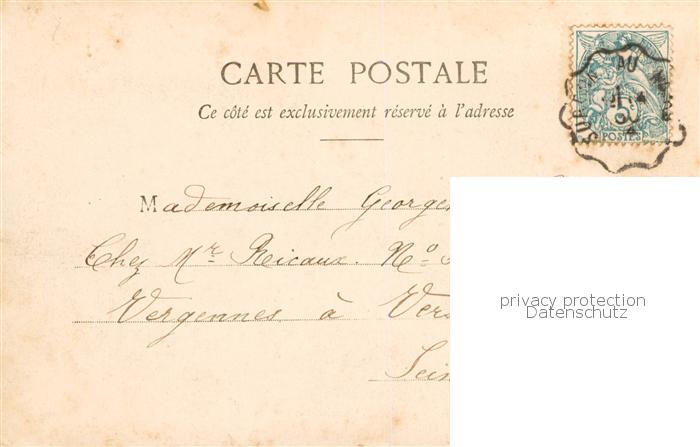 CARTE POSTALE
Ce côté est exclusivement réservé à l'adresse
POSTES
AU
Mademoiselle Georgen
Chez Mr Ricaux. No
Vergennes à Vers
Sein
privacy protection
Datenschutz